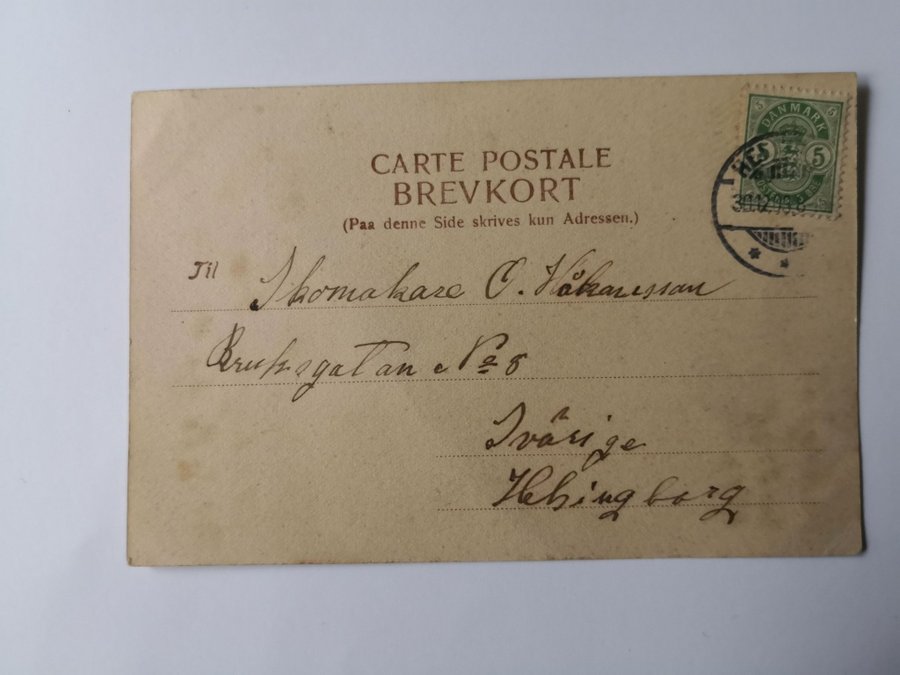 CARTE POSTALE
BREVKORT
(Paa denne Side skrives kun Adressen.)
DANMARK
5 5
5
HES
30.12.99.
Til Skomakare C. Håkansson
Bruksgatan No 8
Svärige
Helsingborg